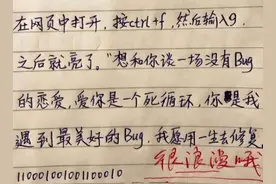 在网页中打开，按ctrl+f，然后输入9.
之后就亮了。“想和你谈一场没有Bug
的恋爱，爱你是一个死循环，你是我
遇到最美好的Bug，我愿用一生去修复
11000100100110010
很浪漫哦